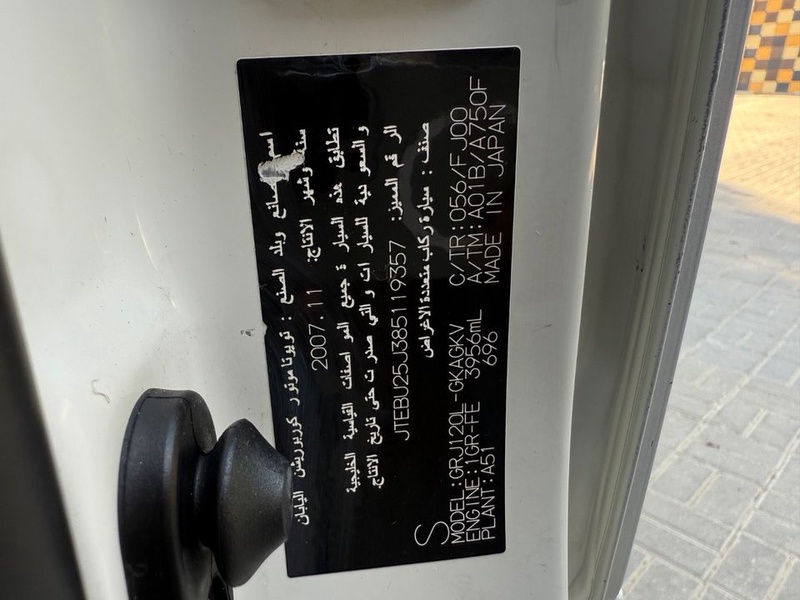 اسم الصانع وبلد الصنع : تويوتا موتور كوربوريشن اليابان
سنة وشهر الانتاج: 2007.11
تطابق هذه السيارة جميع المواصفات القياسية الخليجية
والسعودية للسيارات والتي صدرت حتى تاريخ الانتاج.
الرقم المميز: JTEBU25J385119357
صنف : سيارة ركاب متعددة الاغراض
S
MODEL:GRJ120L-GKAGKV C/TR:056/FJ00
ENGINE:1GR-FE 3956mL A/TM:A01B/A750F
PLANT:A51 696 MADE IN JAPAN